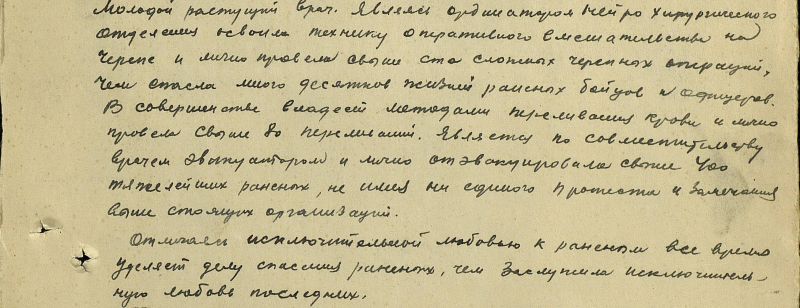 Молодой растущий врач. Являясь ординатором нейро хирургического
отделения освоила технику оперативного вмешательства на
черепе и лично провела свыше ста сложных черепных операций,
чем спасла много десятков жизней раненых бойцов и офицеров.
В совершенстве владеет методами переливания крови и лично
провела свыше 80 переливаний. Является по совместительству
врачем эвакуатором и лично отэвакуировала свыше 400
тяжелейших раненых, не имея ни единого протеста и замечания
выше стоящих организаций.
Отличаясь исключительной любовью к раненым все время
уделяет делу спасения раненых, чем заслужила исключитель-
ную любовь последних.